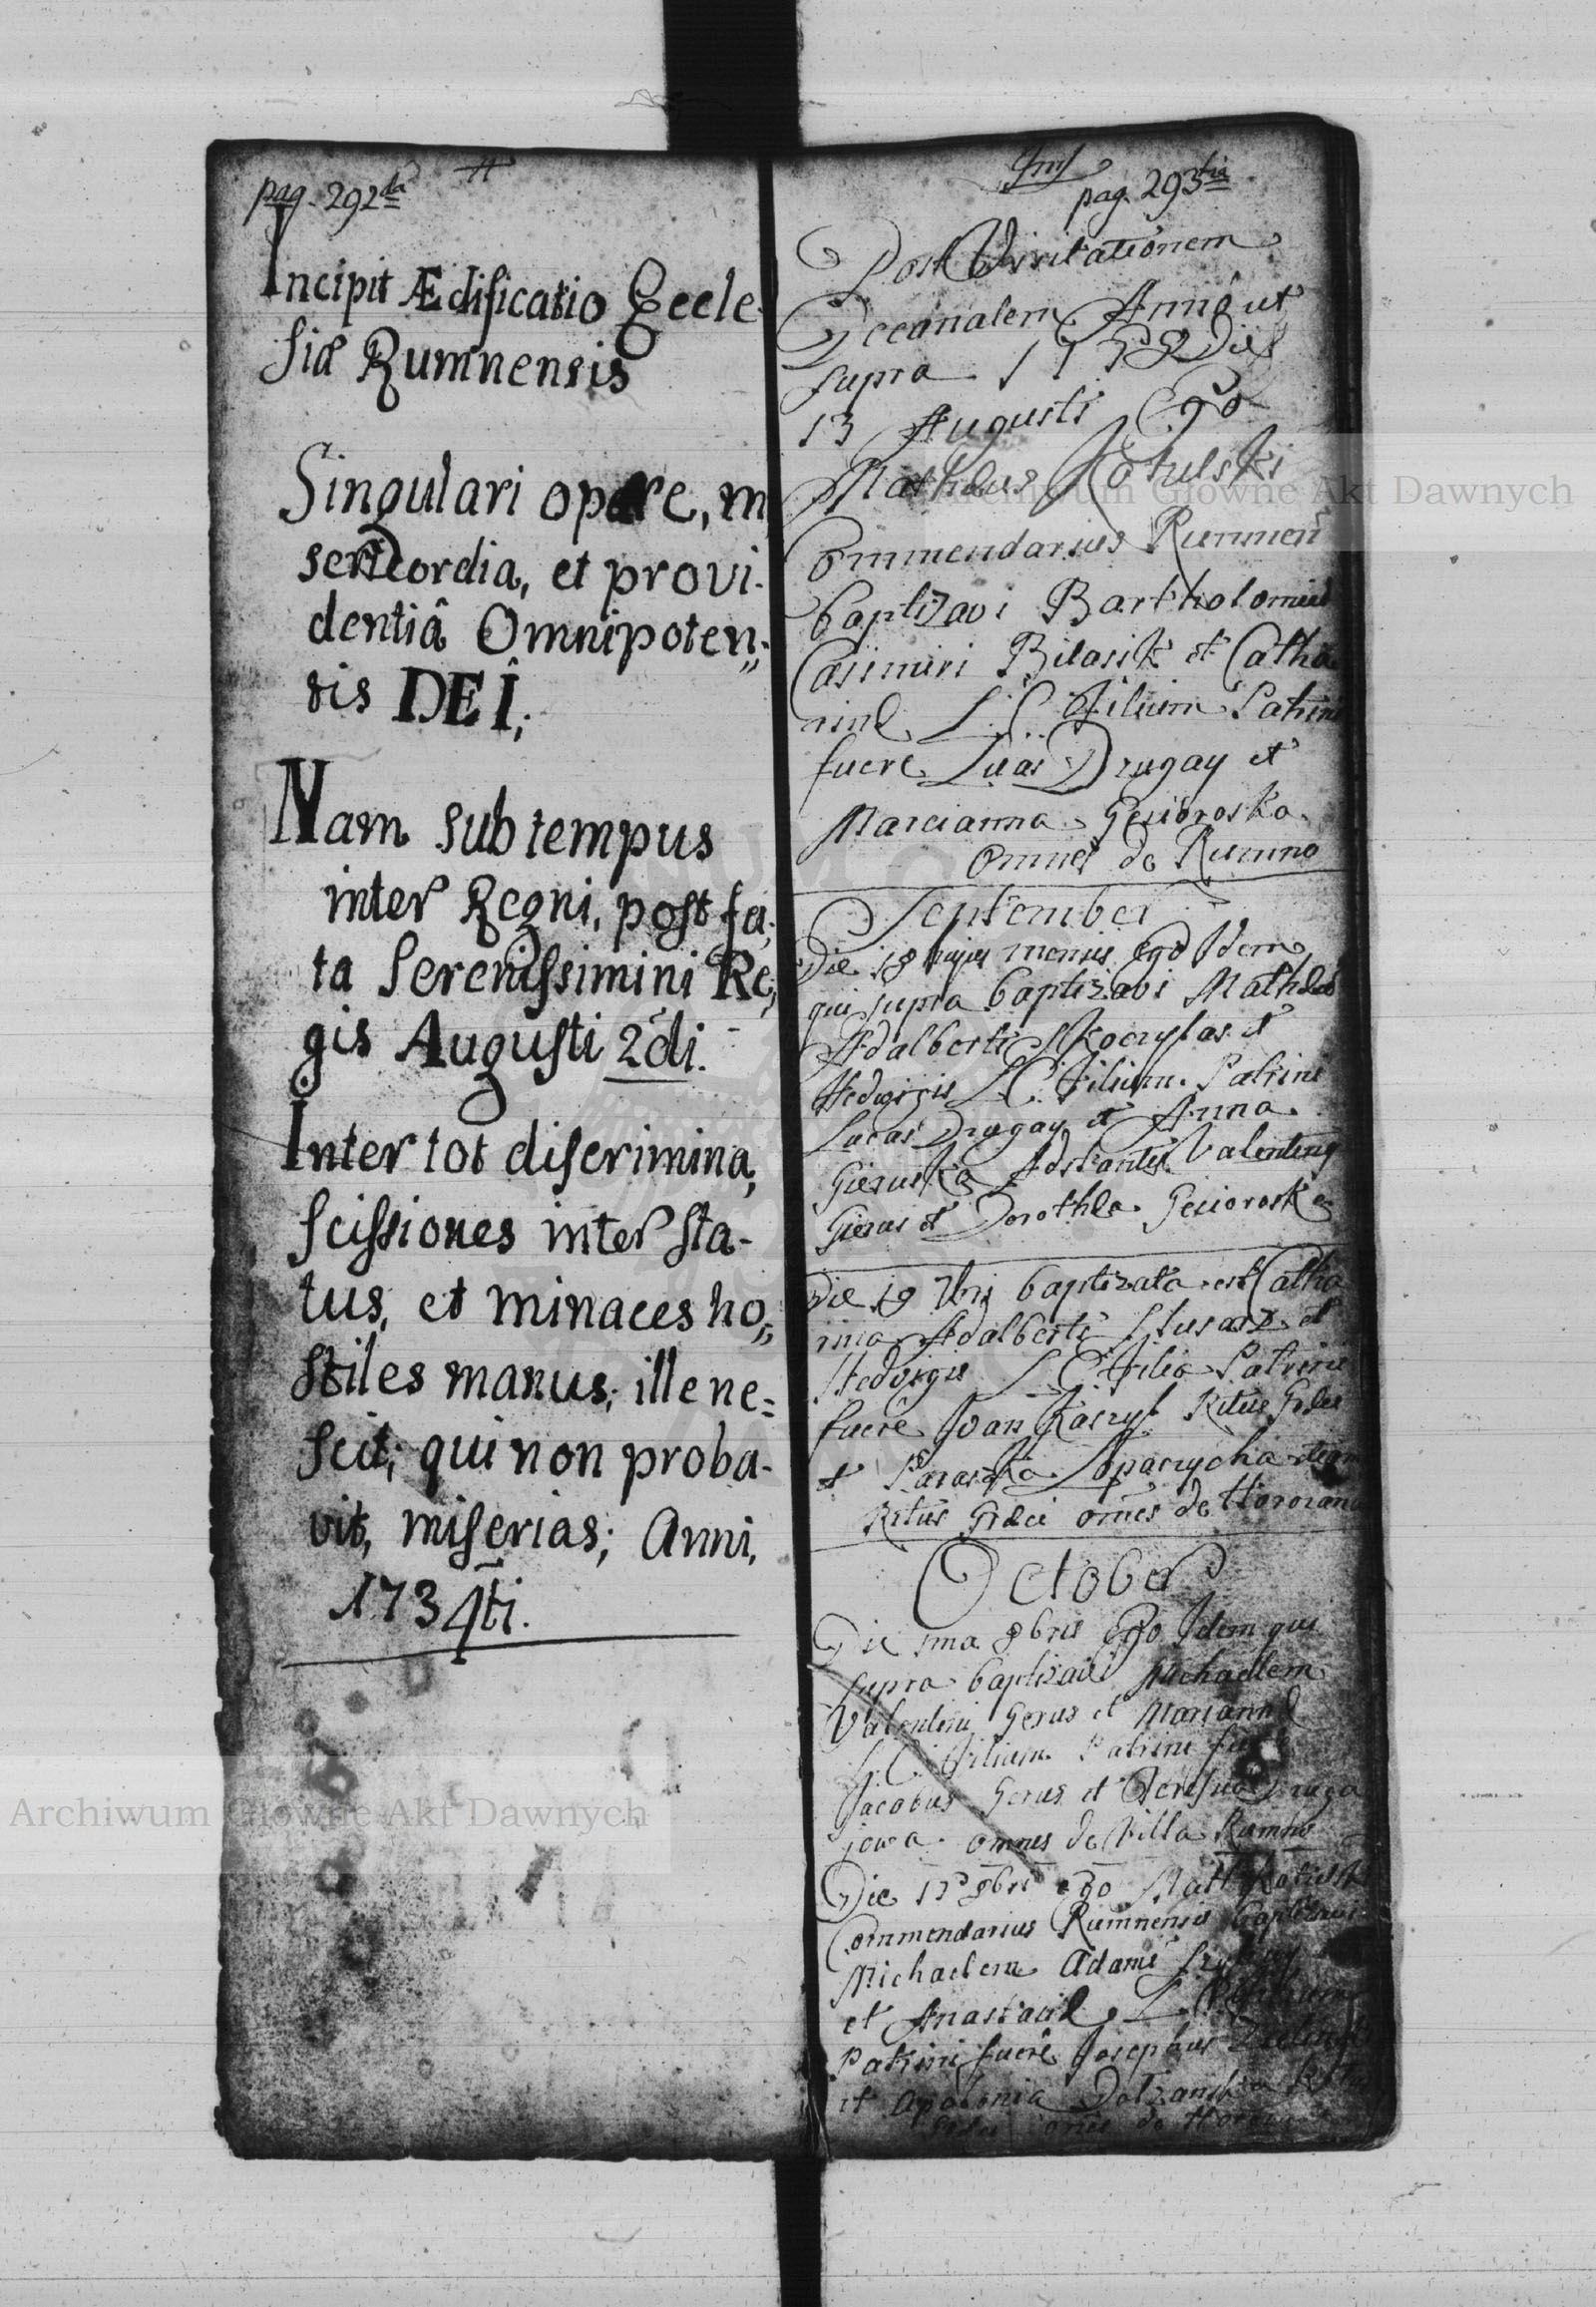 pag. 292da
Incipit Ædificatio Eccle-
siæ Rumnensis
Singulari opere, mi
sericordia, et provi-
dentiâ Omnipoten„
tis DEI;
Nam sub tempus
inter Regni, post fa„
ta Serenissimini Re„
gis Augusti 2di.
Inter tot discrimina,
scissiones inter sta-
tus, et minaces ho„
stiles manus; ille ne=
scit; qui non proba-
vit, miserias; Anni,
1734ti.
pag. 293tia
Post Visitationem
Decanalem Anno ut
supra Die
13 Augusti Ego
Mathæus Kotulski
Commendarius Rumnen
baptizavi Bartholomeu
Casimiri Bilasik et Catha
rinæ L. C. Filium Patrini
fuere Lucas Drugay et
Marcianna Gesioroska
Omnes de Rumno
September
Die 18 hujus mensis ego Idem
qui supra baptizavi Mathæu
Adalberti et
Hedvigis L. C. Filium. Patrini
Lucas Drugay et Anna
Gieruska Adstantes Valentinq
Gierus et Dorothea Gesioroska
Die 19 7bris baptizata est Catha
rina Adalberti Slusarz et
Hedvigis L C Filia Patrini
fuere Ivan Ritus Græci
et Paraska Lopaczycha item
Ritus Græci omes de Horozana
October
Die 1ma 8bris Ego Idem qui
supra baptizavi Michaelem
Valentini Gerus et Mariannæ
L. C. Filium Patrini
Jacobus Gerus et Druga
jowa omnes de Villa Rumno
Die 8bris ego Math Kotulsk
Commendarius Rumnensis baptizavi
Michaelem Adami
et Anastasiæ L. C. Filium
Patrini fuere Josephus
et Apolonia
Græci omes de
Archiwum Główne Akt Dawnych
Archiwum Główne Akt Dawnych